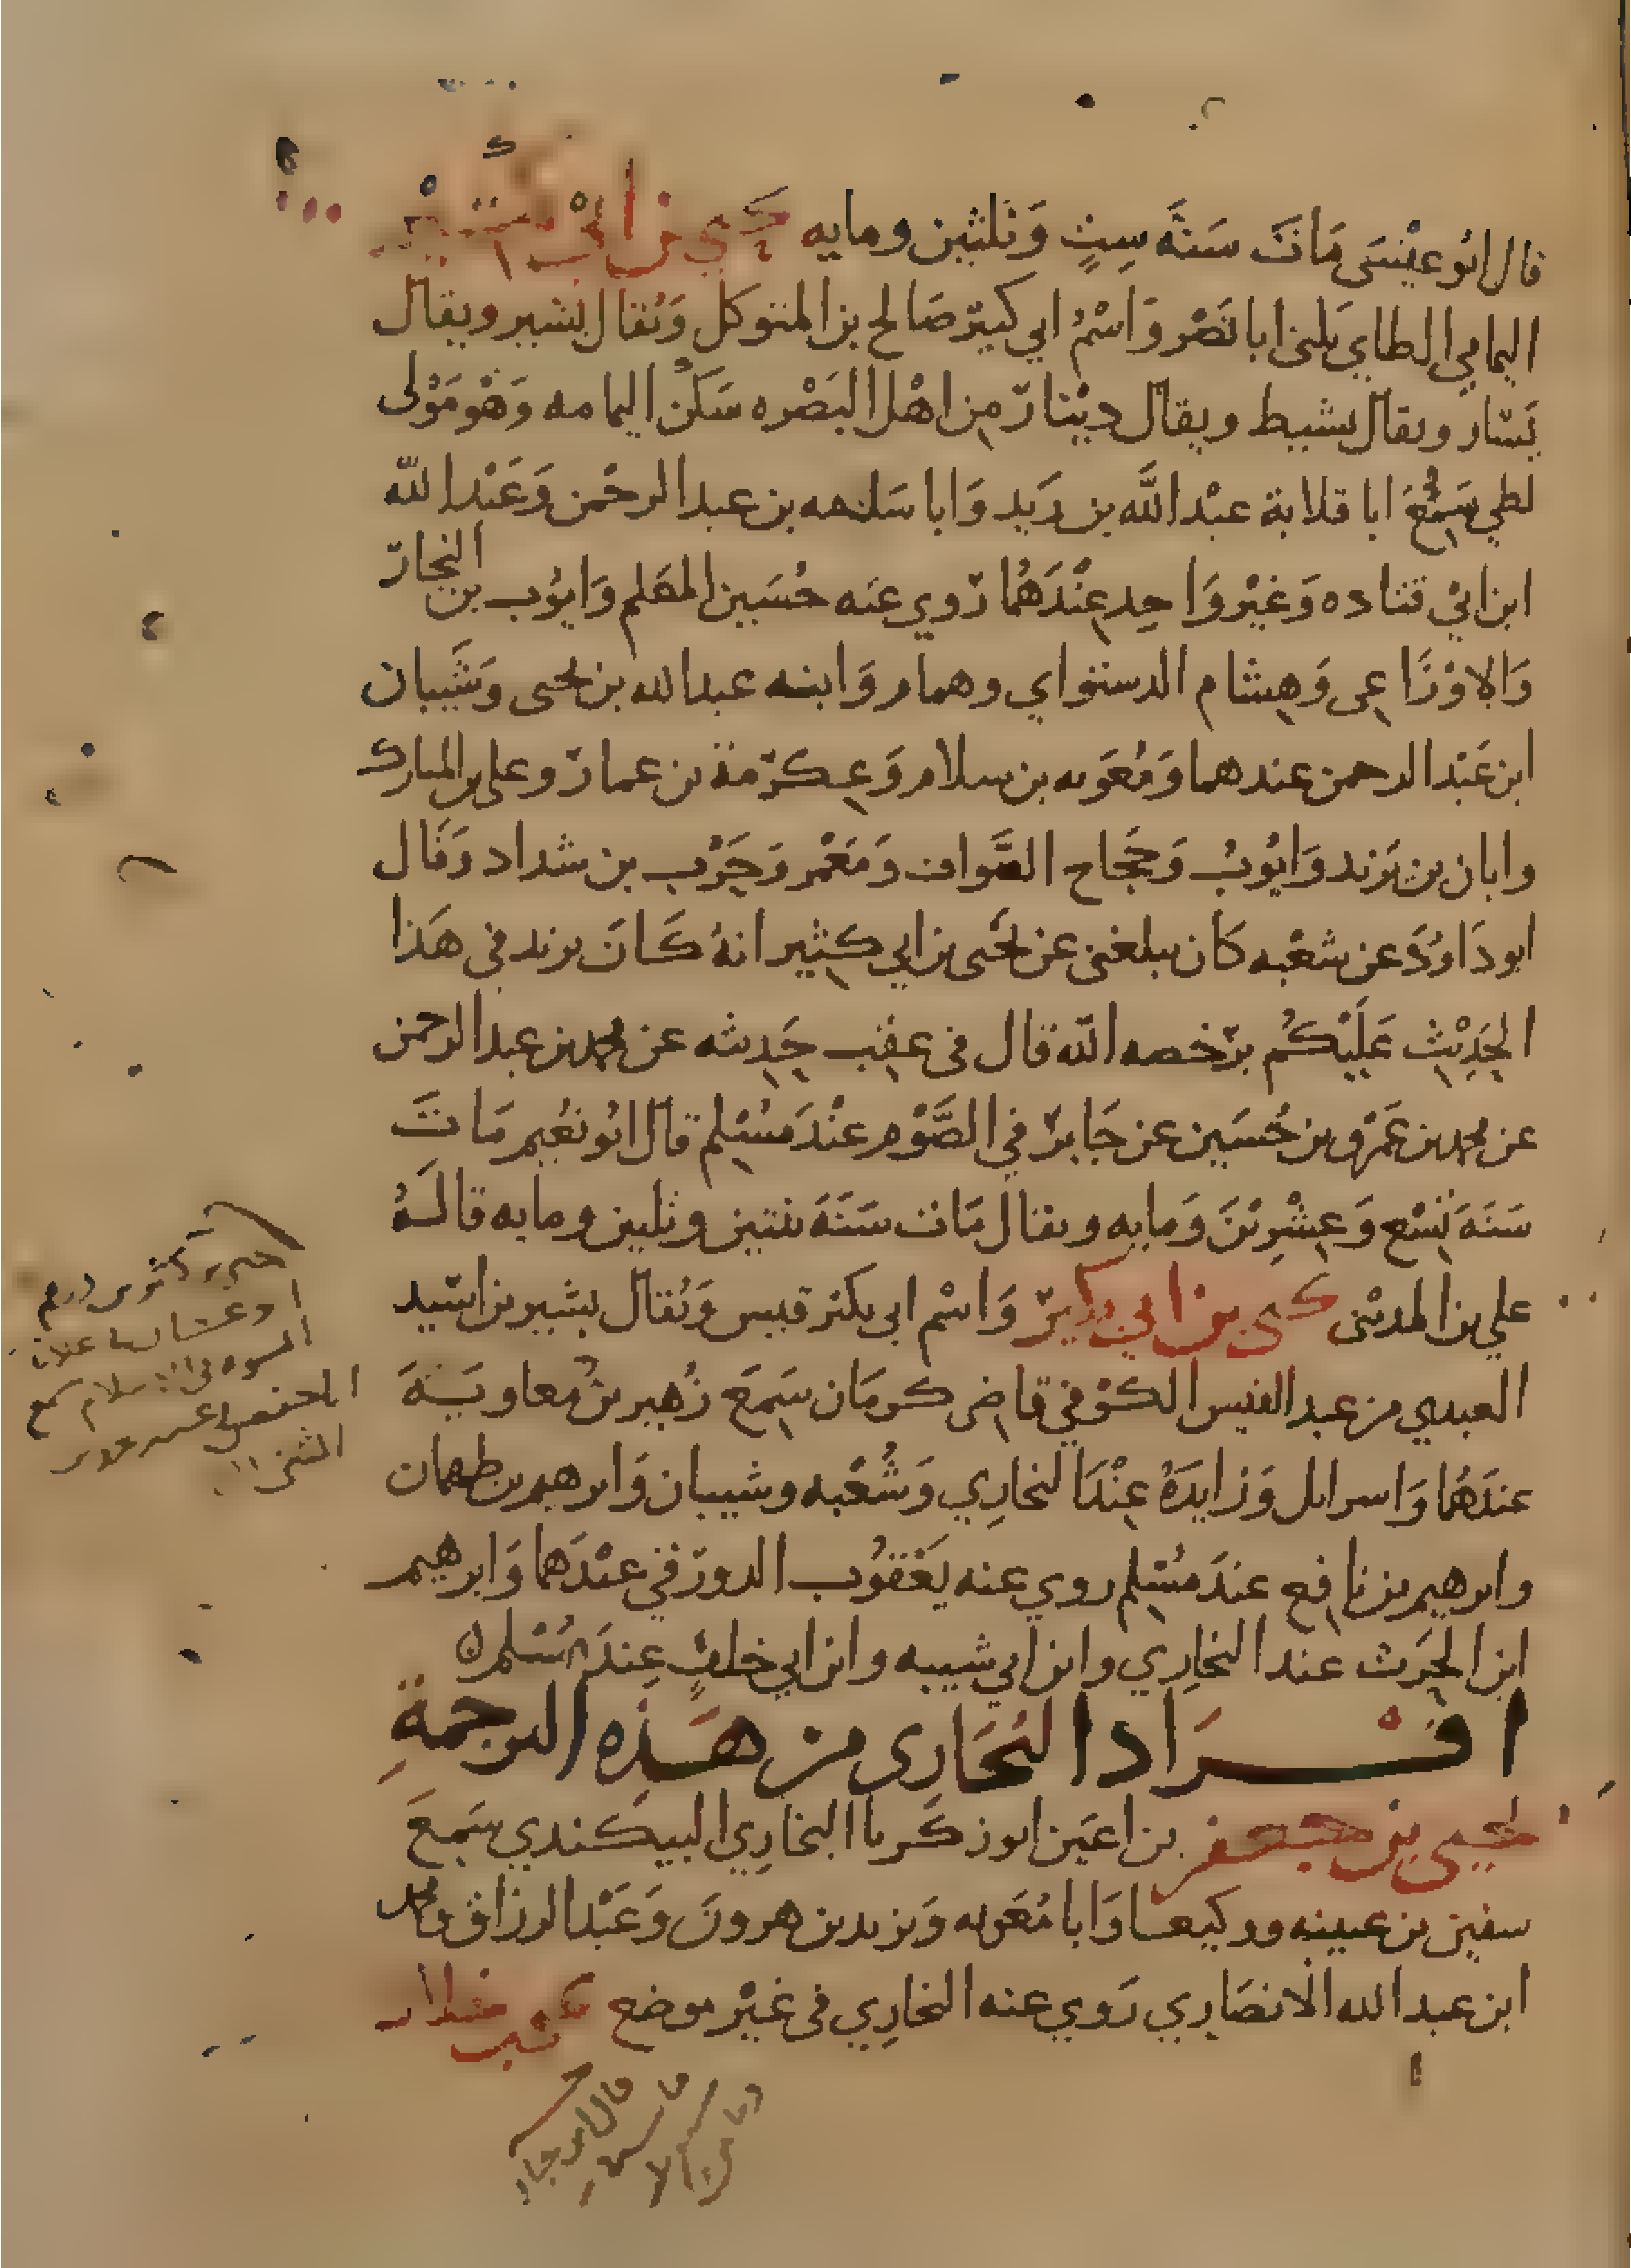 قال ابو عيسى مات سنة ست وثلثين ومايه يحيى بن ابي كثير
اليمامي الطاي يكنى ابا نصر واسم ابي كثير صالح بن المتوكل ويقال نشير ويقال
يسار ويقال نشيط ويقال دينار من اهل البصره سكن اليمامه وهو مولى
لطي سمع ابا قلابة عبد الله بن زيد وابا سلمه بن عبد الرحمن وعبد الله
ابن ابي قتاده وغير واحد عندهما روي عنه حسين المعلم وايوب بن النجار
والاوزاعى وهشام الدستواي وهمام وابنه عبد الله بن يحيى وشيبان
ابن عبد الرحمن عندهما ومعويه بن سلام وعكرمة بن عمار وعلي بن المبارك
وابان بن يزيد وايوب وحجاج الصواف ومعمر وحرب بن شداد وقال
ابو داود عن شعبه كان يبلغنى عن يحيى بن ابي كثير انه كان يزيد فى هذا
الحديث عليكم برخصه الله قال فى عقب حديثه عن محمد بن عبد الرحمن
عن محمد بن عمرو بن حسين عن جابر في الصوم عند مسلم قال ابو نعيم مات
سنة تسع وعشرين ومايه ويقال مات سنة ثنتين وثلثين ومايه قاله
علي بن المدينى يحيى بن ابي بكير واسم ابي بكير قيس ويقال بشير بن اسيد
العبدي من عبد القيس الكوفي قاضى كرمان سمع زهير بن معاوية
عندهما واسرايل وزايدة عند البخاري وشعبه وشيبان وابرهيم بن طهمان
وابرهيم بن نافع عند مسلم روي عنه يعقوب الدورقي عندهما وابرهيم
ابن الحرث عند البخاري وابن ابي شيبه وابن ابي خلف عند مسلم
افراد البخارى من هذه الترجمة
يحيى بن جعفر بن اعين ابو زكريا البخاري البيكندي سمع
سفين بن عيينه ووكيعا وابا معويه ويزيد بن هرون وعبد الرزاق ومحمد
ابن عبد الله الانصاري روي عنه البخاري فى غير موضع